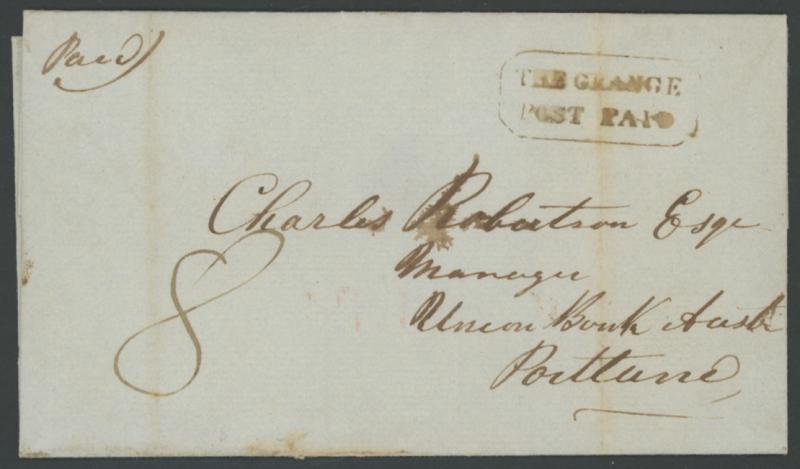 Paid
THE GRANGE
POST PAID
Charles Robertson Esqe
Manager
Union Bank Austr
Portland
8